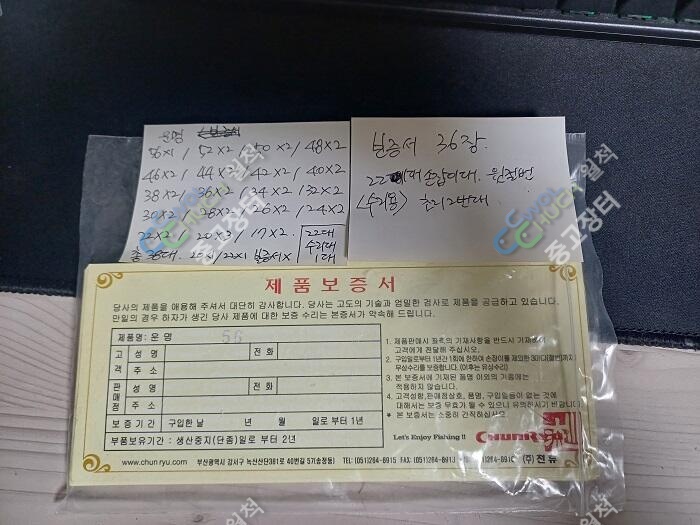 운명
56x1 / 52x2 / 50x2 / 48x2
46x2 / 44x2 / 42x2 / 40x2
38x2 / 36x2 / 34x2 / 32x2
30x2 / 28x2 / 26x2 / 24x2
22x2 / 20x3 / 17x2.
22대
수리대
1대
총 38대. 20x1/22x1 보증서 x
보증서 36장.
22 손잡이대. 원절번
<수리용> 초리2번대.
제품보증서
당사의 제품을 애용해 주셔서 대단히 감사합니다. 당사는 고도의 기술과 엄밀한 검사로 제품을 공급하고 있습니다.
만일의 경우 하자가 생긴 당사 제품에 대한 보증 수리는 본증서가 약속해 드립니다.
제품명: 운 명 56
고객 성명 전화
주소
판매점 성명 전화
주소
보증기간 구입한 날 년 월 일로 부터 1년
부품보유기간 : 생산중지(단종)일로 부터 2년
1. 제품판매시 좌측의 기재사항을 반드시 기재하여
고객에게 전달해 주십시오.
2. 구입일로부터 1년간 1회에 한하여 손잡이를 제외한 마디대(절번)까지
무상수리를 보증합니다. (이후는 유상수리)
3. 본 보증서에 기재된 품명 이외의 기종에는
적용하지 않습니다.
4. 고객성함, 판매점상호, 품명, 구입일등이 없는 것에
대해서는 보증 무효가 될 수 있으니 유의하시기 바랍니다.
* 본 보증서는 소중히 간직하십시오.
Let's Enjoy Fishing !! CHUNRYU
www.chunryu.com 부산광역시 강서구 녹산산단381로 40번길 57(송정동) TEL: (051)264-8915 FAX: (051)264-891 (주)천류
CHUCY 월척
중고장터